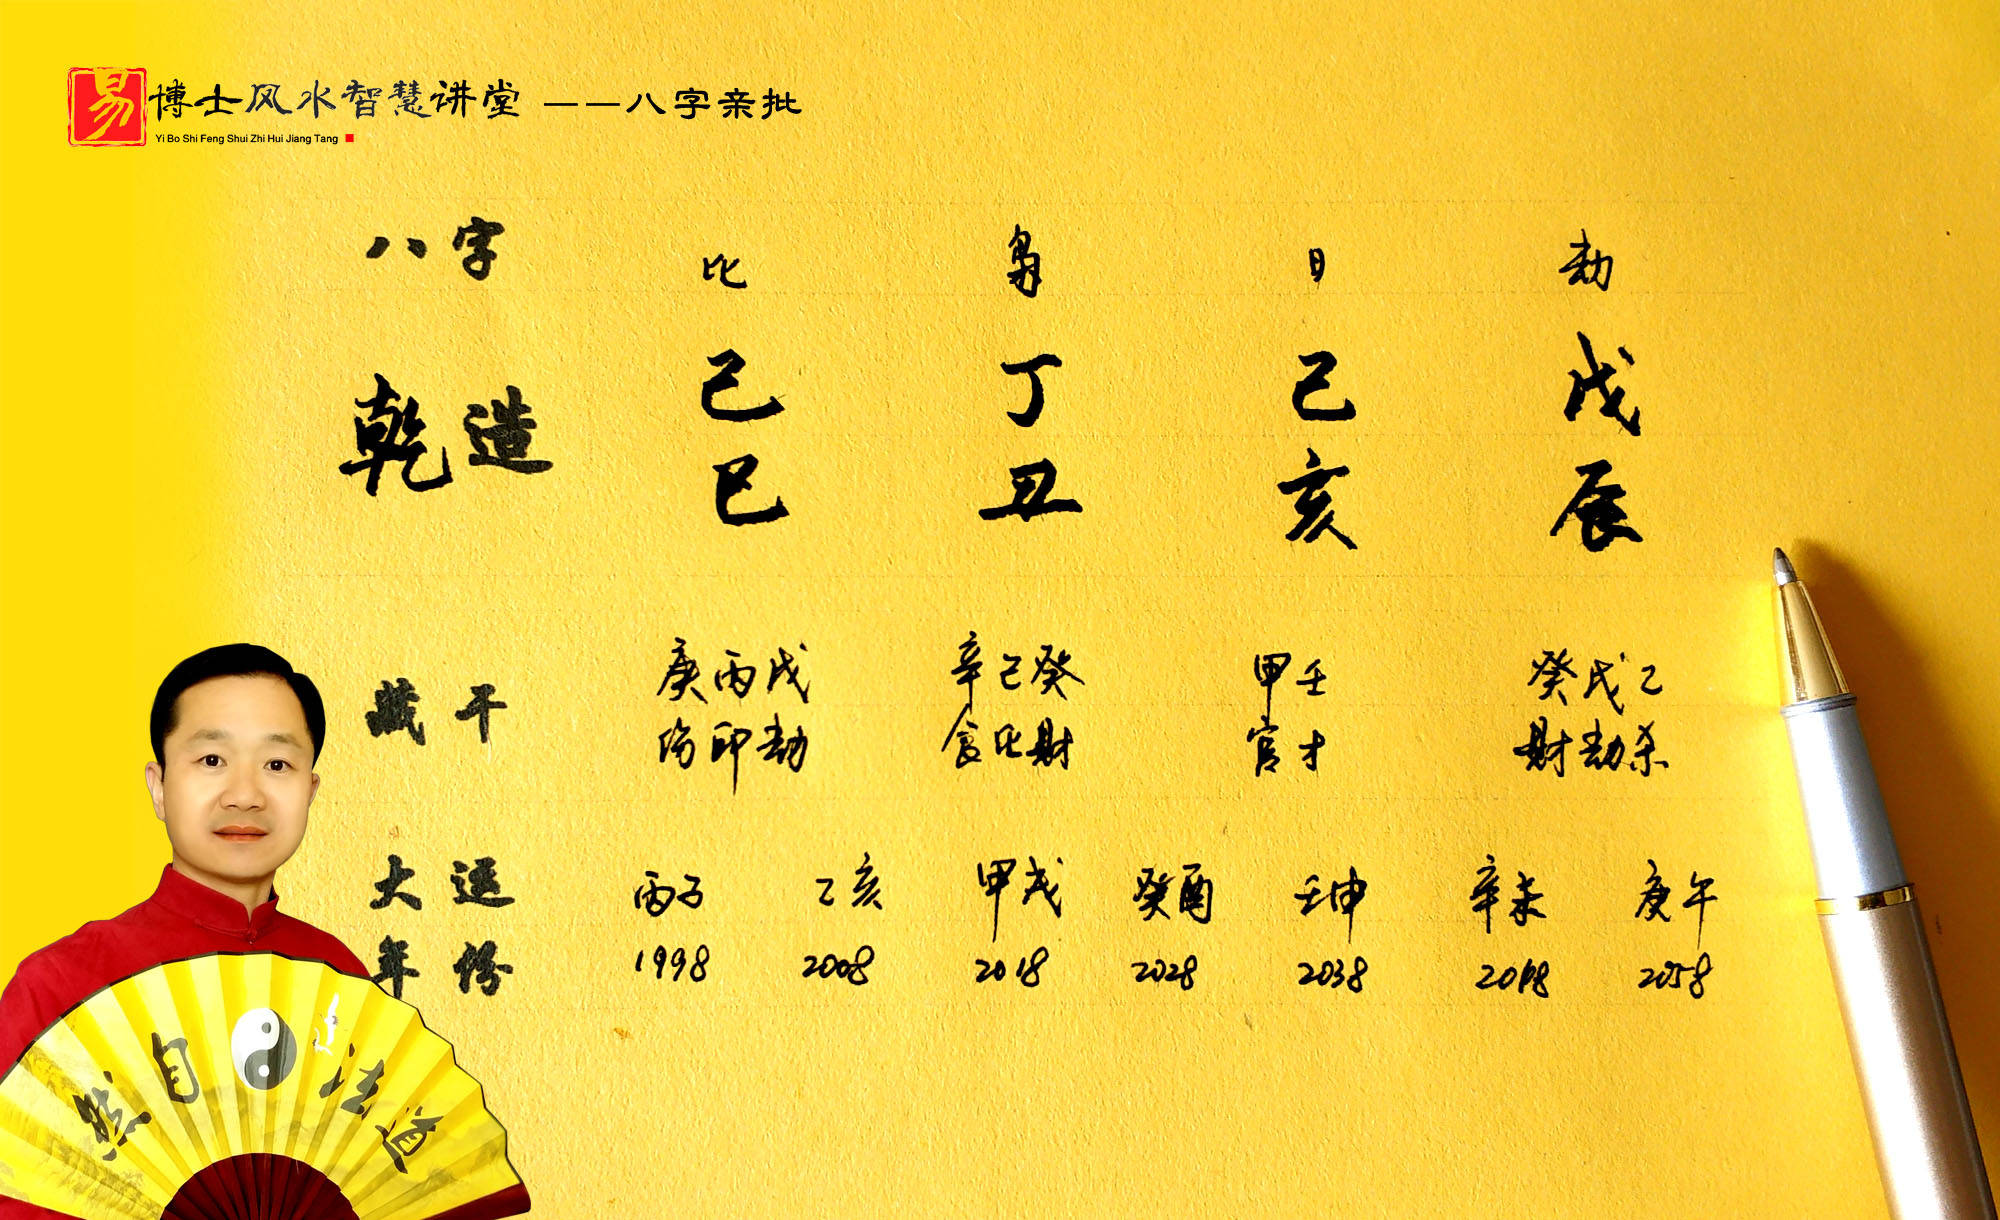 易博士风水智慧讲堂 ——八字亲批
Yi Bo Shi Feng Shui Zhi Hui Jiang Tang
八字 比 枭 日 劫
乾造 己 丁 己 戊
巳 丑 亥 辰
藏干 庚丙戊 辛己癸 甲壬 癸戊乙
伤印劫 食比财 官才 财劫杀
大运 丙子 乙亥 甲戌 癸酉 壬申 辛未 庚午
年份 1998 2008 2018 2028 2038 2048 2058
道法自然